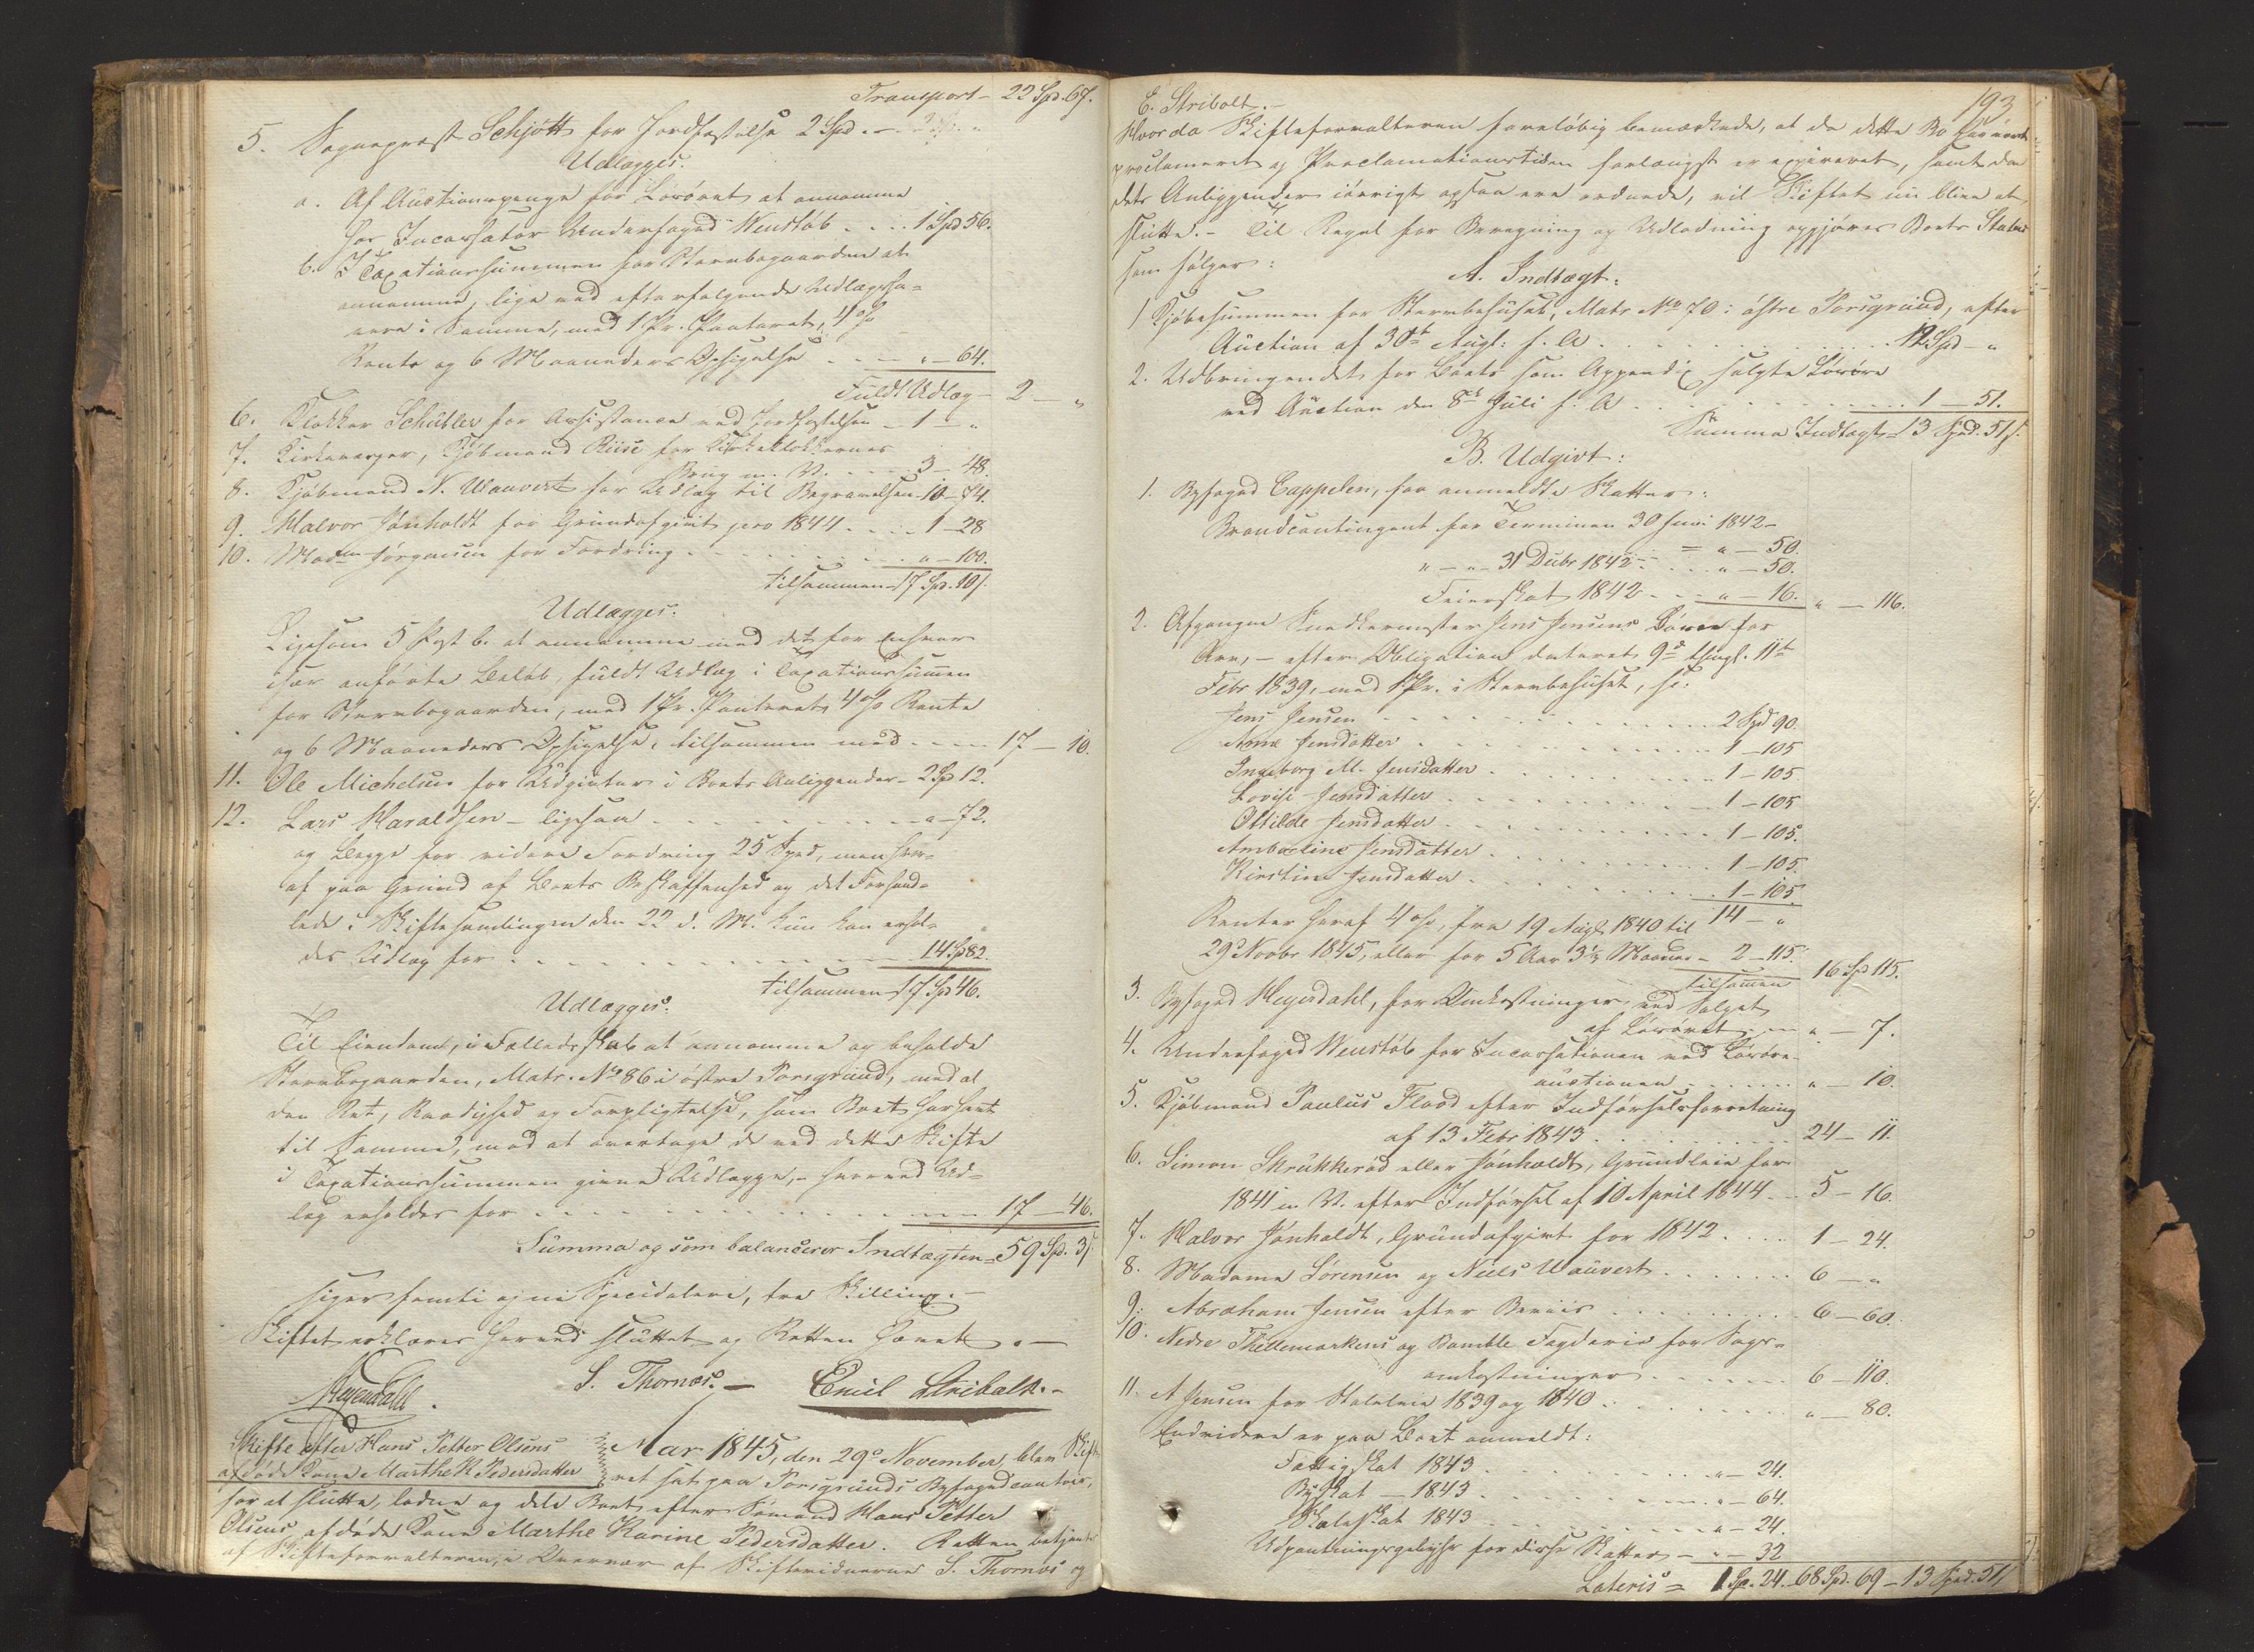 Transport - 22 Spd. 67.
5. Sogneprest Schjøtt for Jordfæstelse 2 Spd. - 
Udlægges:
a. Af Auctionspenge for Løsøret at annamme
hos Incassator Underfoged Wenstøb . . . 1 Spd 56.
b. I Taxationssummen for Stervbogaarden at
annamme, lige med efterfølgende Udlægsha-
vere i Samme, med 1 Pr. Panteret, 4 o/o
Rente og 6 Maaneders Opsigelse . . . " - 64.
Fuldt Udlæg - 2 - "
6. Klokker Schübler for Assistance ved Jordfæstelsen - 1 - "
7. Kirkeværger, Kjøbmand Riise for Kirkeklokkernes
Brug m. V. . . . 3 - 48.
8. Kjøbmand N. Wauvert for Udlæg til Begravelsen - 10 - 74.
9. Halvor Jønholdt for Grundafgivt pro 1844 . . . 1 - 28
10. Madm Jørgensen for Fordring . . . " - 100.
tilsammen - 17 Spd. 10 s.
Udlægges:
Ligesom 5 Post b. at annamme med det for Enhver
især anførte Beløb, fuldt Udlæg i Taxationssummen
for Stervbogaarden, med 1 Pr. Panteret, 4 o/o Rente
og 6 Maaneders Opsigelse, tilsammen med . . . 17 - 10.
11. Ole Michelsen for Udgivter i Boets Anliggender - 2 Sp 12.
12. Lars Haraldsen - ligesaa . . . " - 72.
og Begge for videre Fordring 25 Spd, men hvor-
af paa Grund af Boets Beskaffenhed og det Forhand-
lede i Skiftesamlingen den 22 d. M. kun kan erhol-
des Udlæg for . . . 14 Sp 82.
tilsammen 17 Spd 46.
Udlægges:
Til Eiendom, i Fælledsskab at annamme og beholde
Stervbogaarden, Matr. No 86 i østre Porsgrund, med al
den Ret, Raadighed og Forpligtelse, som Boet har havt
til Samme, mod at overtage de ved dette Skifte
i Taxationssummen givne Udlægge, - hvorved Ud-
læg erholdes for . . . 17 - 46.
Summa og som balancerer Indtægten = 59 Spd. 3 s.
siger femti og ni Speciedalere, tre Skilling. -
Skiftet erklæres herved sluttet og Retten hævet. -
Heyerdahl. S. Thornæs. - Emil Stribolt. -
Skifte efter Hans Petter Olsens
afdøde Kone Marthe K. Pedersdatter
Aar 1845, den 29de November, blev Skifte-
ret sat paa Porsgrunds Byfogedcontoir,
for at slutte, lodne og dele Boet efter Sømand Hans Petter
Olsens afdøde Kone Marthe Karine Pedersdatter. Retten betjentes
af Skifteforvalteren, i Overvær af Skiftevidnerne S. Thornæs og
193
E. Stribolt. -
Hvorda Skifteforvalteren foreløbig bemærkede, at da dette Bo har været
proclameret og Proclamationstiden forlængst er expireret, samt da
dets Anliggender iøvrigt ogsaa ere ordnede, vil Skiftet nu blive at
slutte. - Til Regel for Beregning og Udlodning opgjøres Boets Status
som følger:
A. Indtægt:
1 Kjøbesummen for Stervbohuset, Matr No 70 i østre Porsgrund, efter
Auction af 30te Augt: f. A . . . 12 Spd - "
2. Udbringendet for Boets som Appendix solgte Løsøre
ved Auction den 8de Juli f. A . . . 1 - 51.
Summa Indtægt = 13 Spd. 51 s.
B. Udgivt:
1. Byfoged Cappelen, for anmeldte Skatter:
Brandcontingent for Terminen 30 Juni 1842 -
= " - 50.
" - " - 31 Decbr 1842 . . . " - 50.
Feierskat 1842 . . . " - 16. " - 116.
2. Afgangne Snedkermester Jens Jensens Børn for
Arv, - efter Obligation dateret 9de thingl. 11te
Febr 1839, med 1 Pr. i Stervbohuset, sc:
Jens Jensen . . . 2 Spd 90.
Anne Jensdatter . . . 1 - 105
Ingeborg M. Jensdatter . . . 1 - 105.
Lovise Jensdatter . . . 1 - 105
Ottilde Jensdatter . . . 1 - 105.
Ambortine Jensdatter . . . 1 - 105.
Kirstine Jensdatter . . . 1 - 105.
14 - "
Renter heraf 4 o/o, fra 19 Augt 1840 til
29de Novbr 1845, eller for 5 Aar 3 1/3 Maaned - 2 - 115.
tilsammen 16 Sp 115.
3. Byfoged Heyerdahl, for Omkostninger ved Salget
af Løsøret . . . " - 7.
4. Underfoged Wenstøb for Incassationen ved Løsøre-
auctionen . . . " - 10.
5. Kjøbmand Paulus Flood efter Indførselsforretning
af 13 Febr 1843 . . . 24 - 11.
6. Simon Skrukkerød eller Jønholdt, Grundleie for
1841 m. V. efter Indførsel af 10 April 1844 . . 5 - 16.
7. Halvor Jønholdt, Grundafgivt for 1842 . . . 1 - 24.
8. Madame Sørensen og Niels Wauvert . . . 6 - "
9. Abraham Jensen efter Beviis . . . 6 - 60.
10. Nedre Thellemarkens og Bamble Fogderie for Sags-
omkostninger . . . 6 - 110.
11. A Jensen for Stoleleie 1839 og 1840 . . . " - 80.
Endvidere er paa Boet anmeldt:
Fattigskat 1843 . . . " - 24.
Byskat - 1843 . . . " - 64.
Skoleskat 1843 . . . " - 24.
Udpantningsgebyhr for disse Skatter - " - 32
Lateris = 1 Sp. 24. - 68 Spd. 69 - 13 Spd. 51 s.